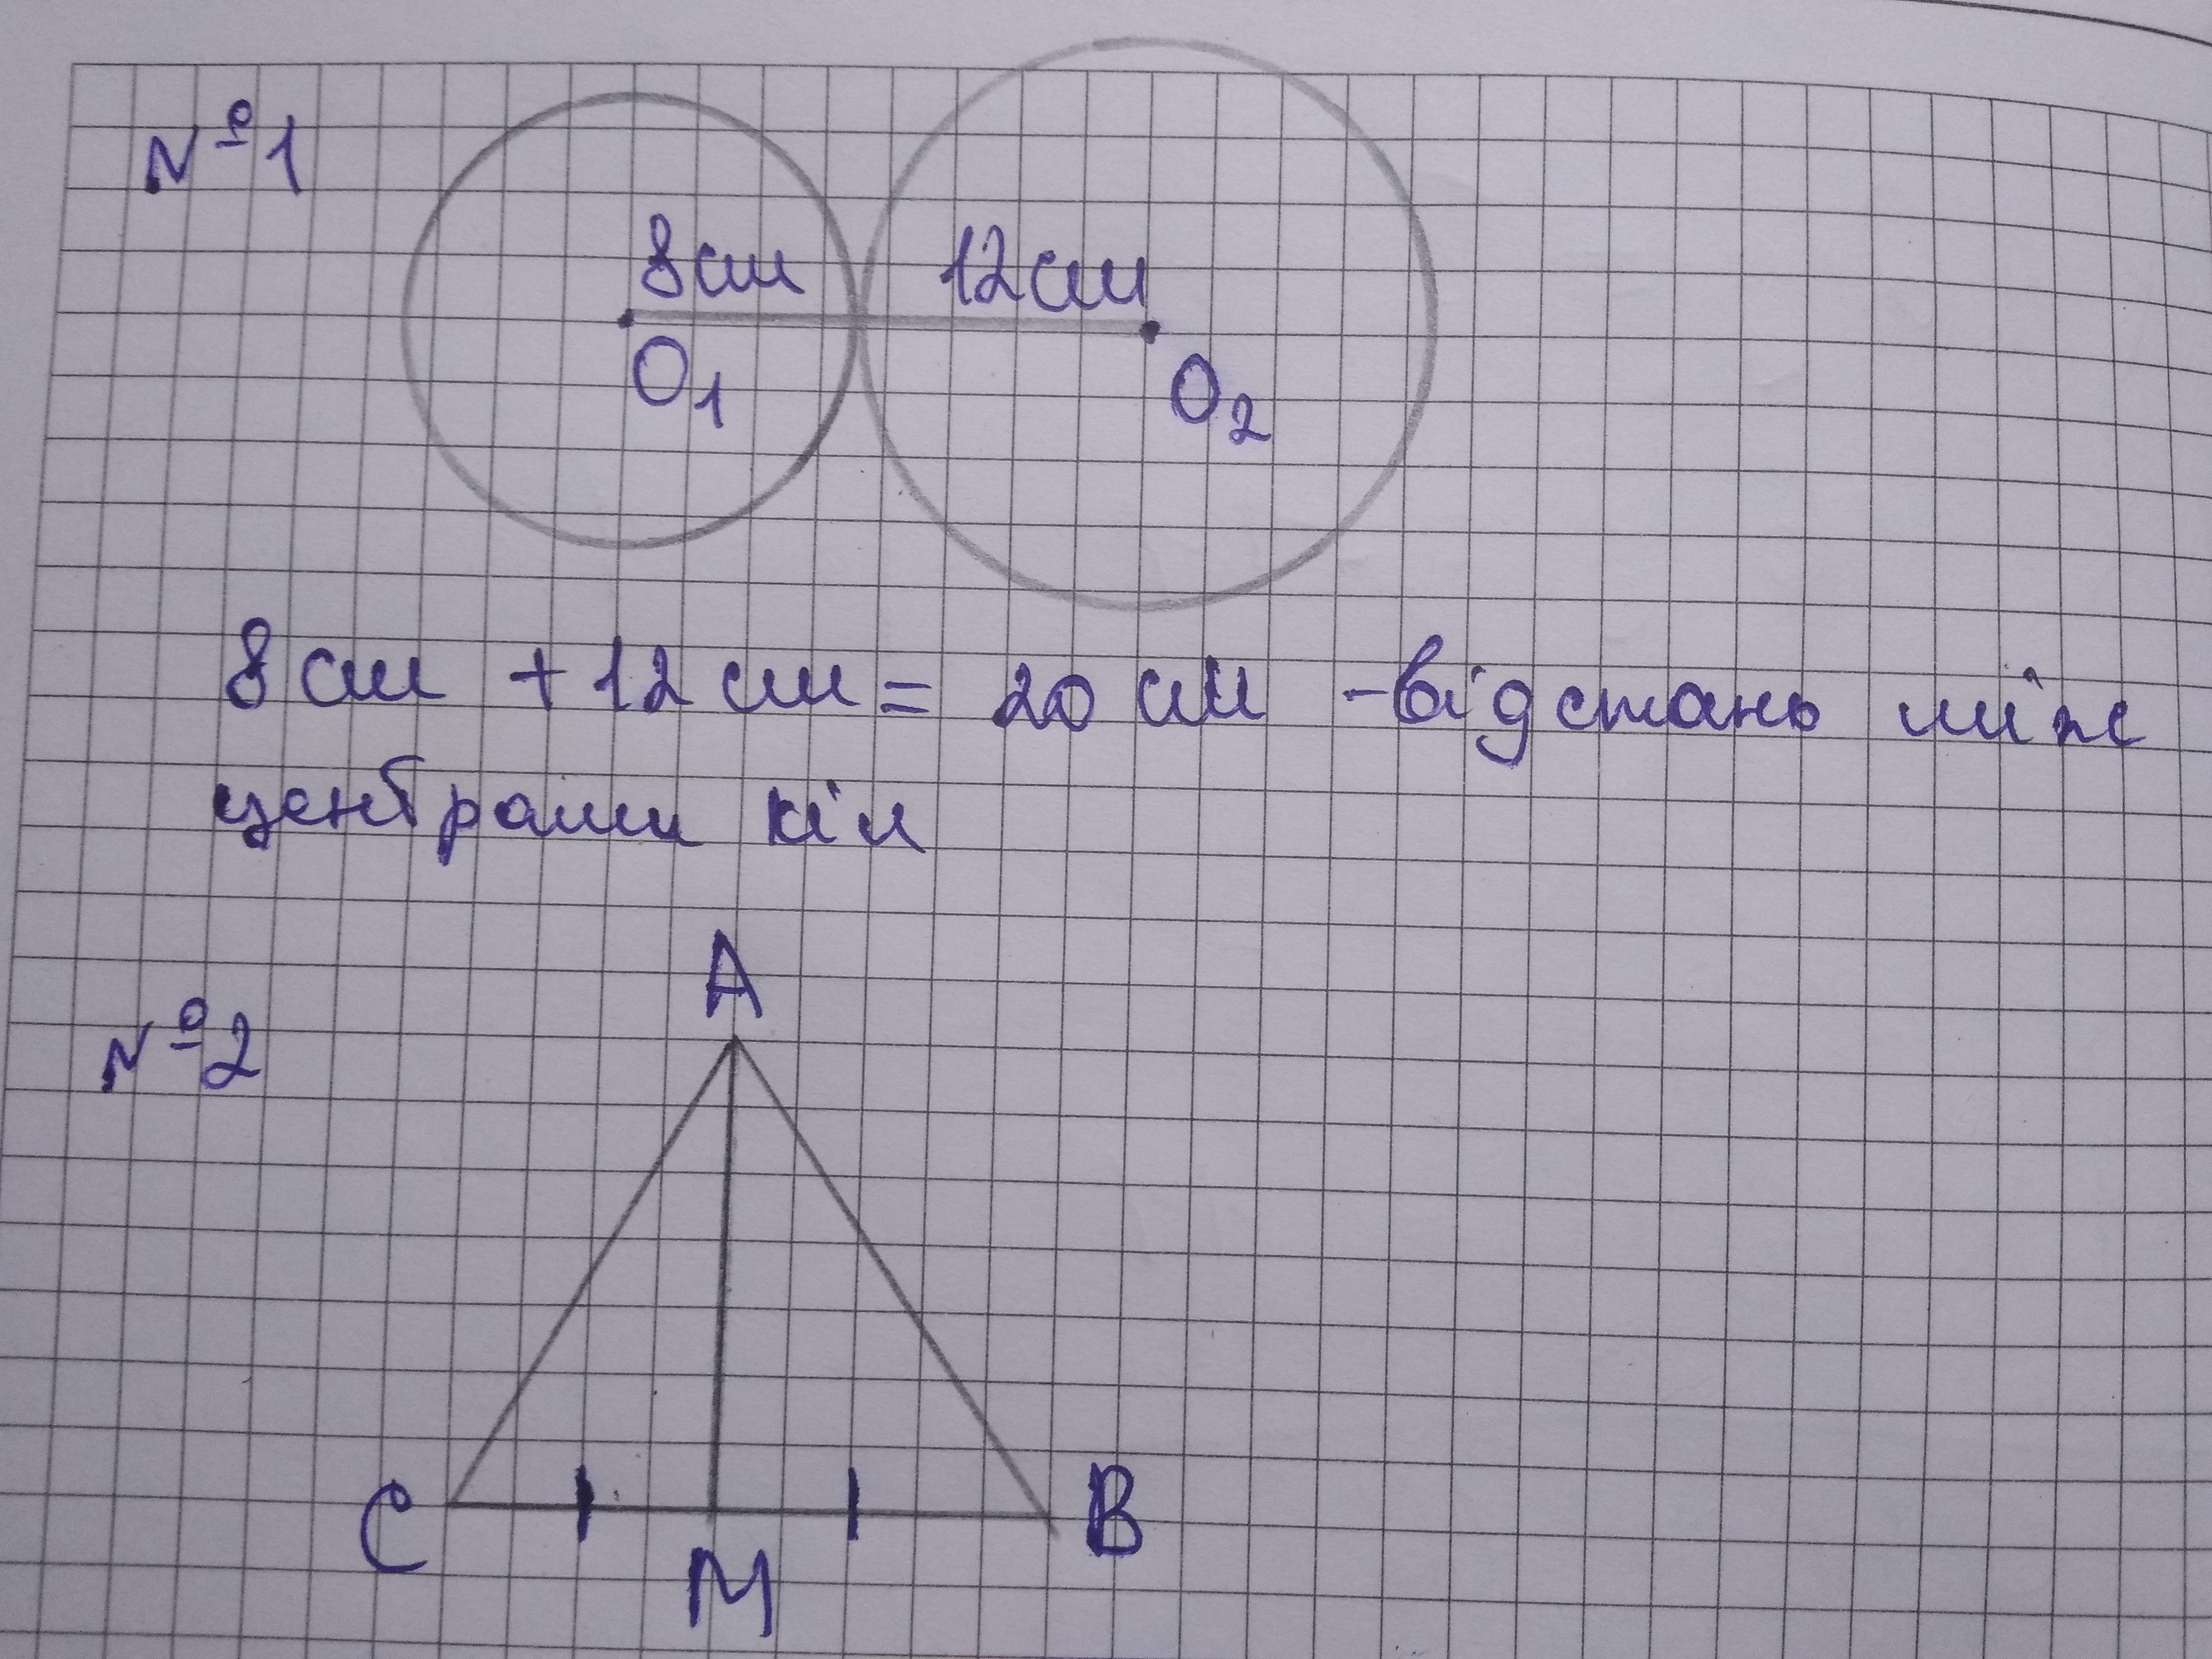 №1
8см 12см
O₁ O₂
8 см + 12 см = 20 см - відстань між
центрами кіл
A
№2
C M B